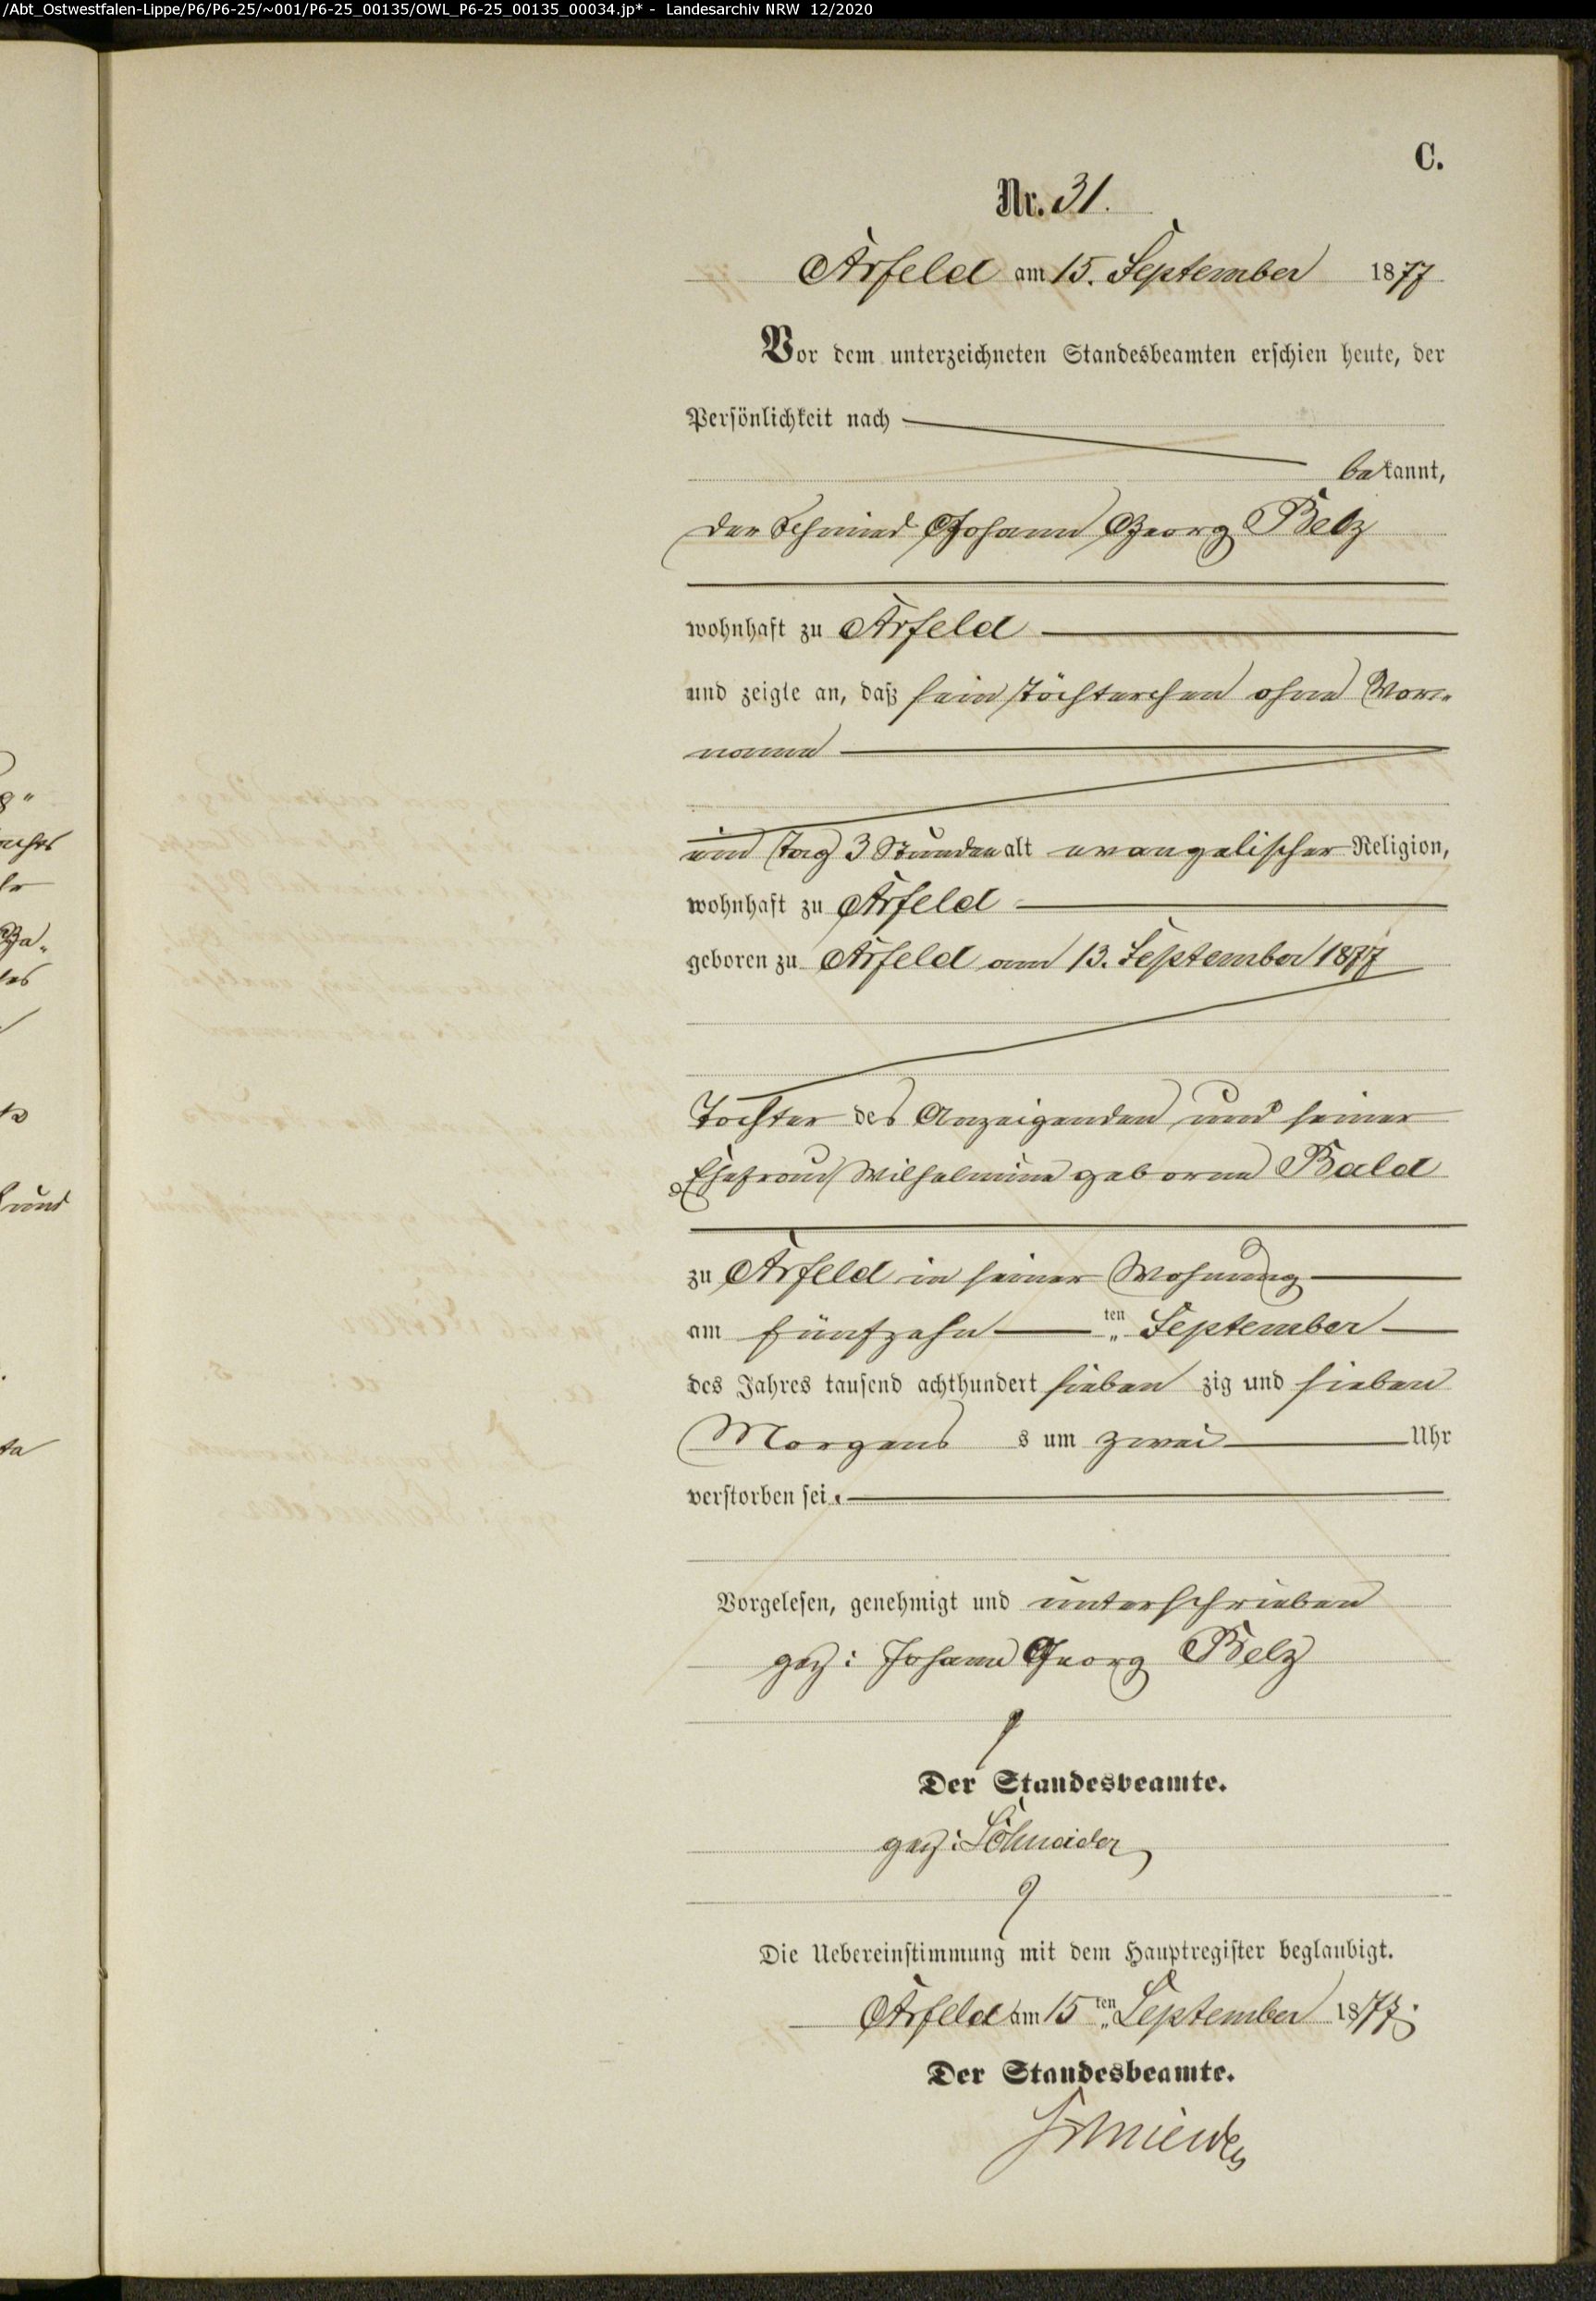 /Abt_Ostwestfalen-Lippe/P6/P6-25/~001/P6-25_00135/OWL_P6-25_00135_00034.jp* - Landesarchiv NRW 12/2020
C.
Nr. 31.
Arfeld am 15. September 1877
Vor dem unterzeichneten Standesbeamten erschien heute, der
Persönlichkeit nach
bekannt,
der Schmied Johann Georg Belz
wohnhaft zu Arfeld
und zeigte an, daß sein Töchterchen ohne Vor-
name
ein Tag 3 Stunden alt evangelischer Religion,
wohnhaft zu Arfeld
geboren zu Arfeld am 13. September 1877
Tochter des Anzeigenden und seiner
Ehefrau Wilhelmine geborne Bald
zu Arfeld in seiner Wohnung
am fünfzehn ten September
des Jahres tausend achthundert sieben zig und sieben
Morgens s um zwei Uhr
verstorben sei.
Vorgelesen, genehmigt und unterschrieben
gez: Johann Georg Belz
Der Standesbeamte.
gez: Schneider
Die Uebereinstimmung mit dem Hauptregister beglaubigt.
Arfeld am 15 ten September 1877.
Der Standesbeamte.
Schneider